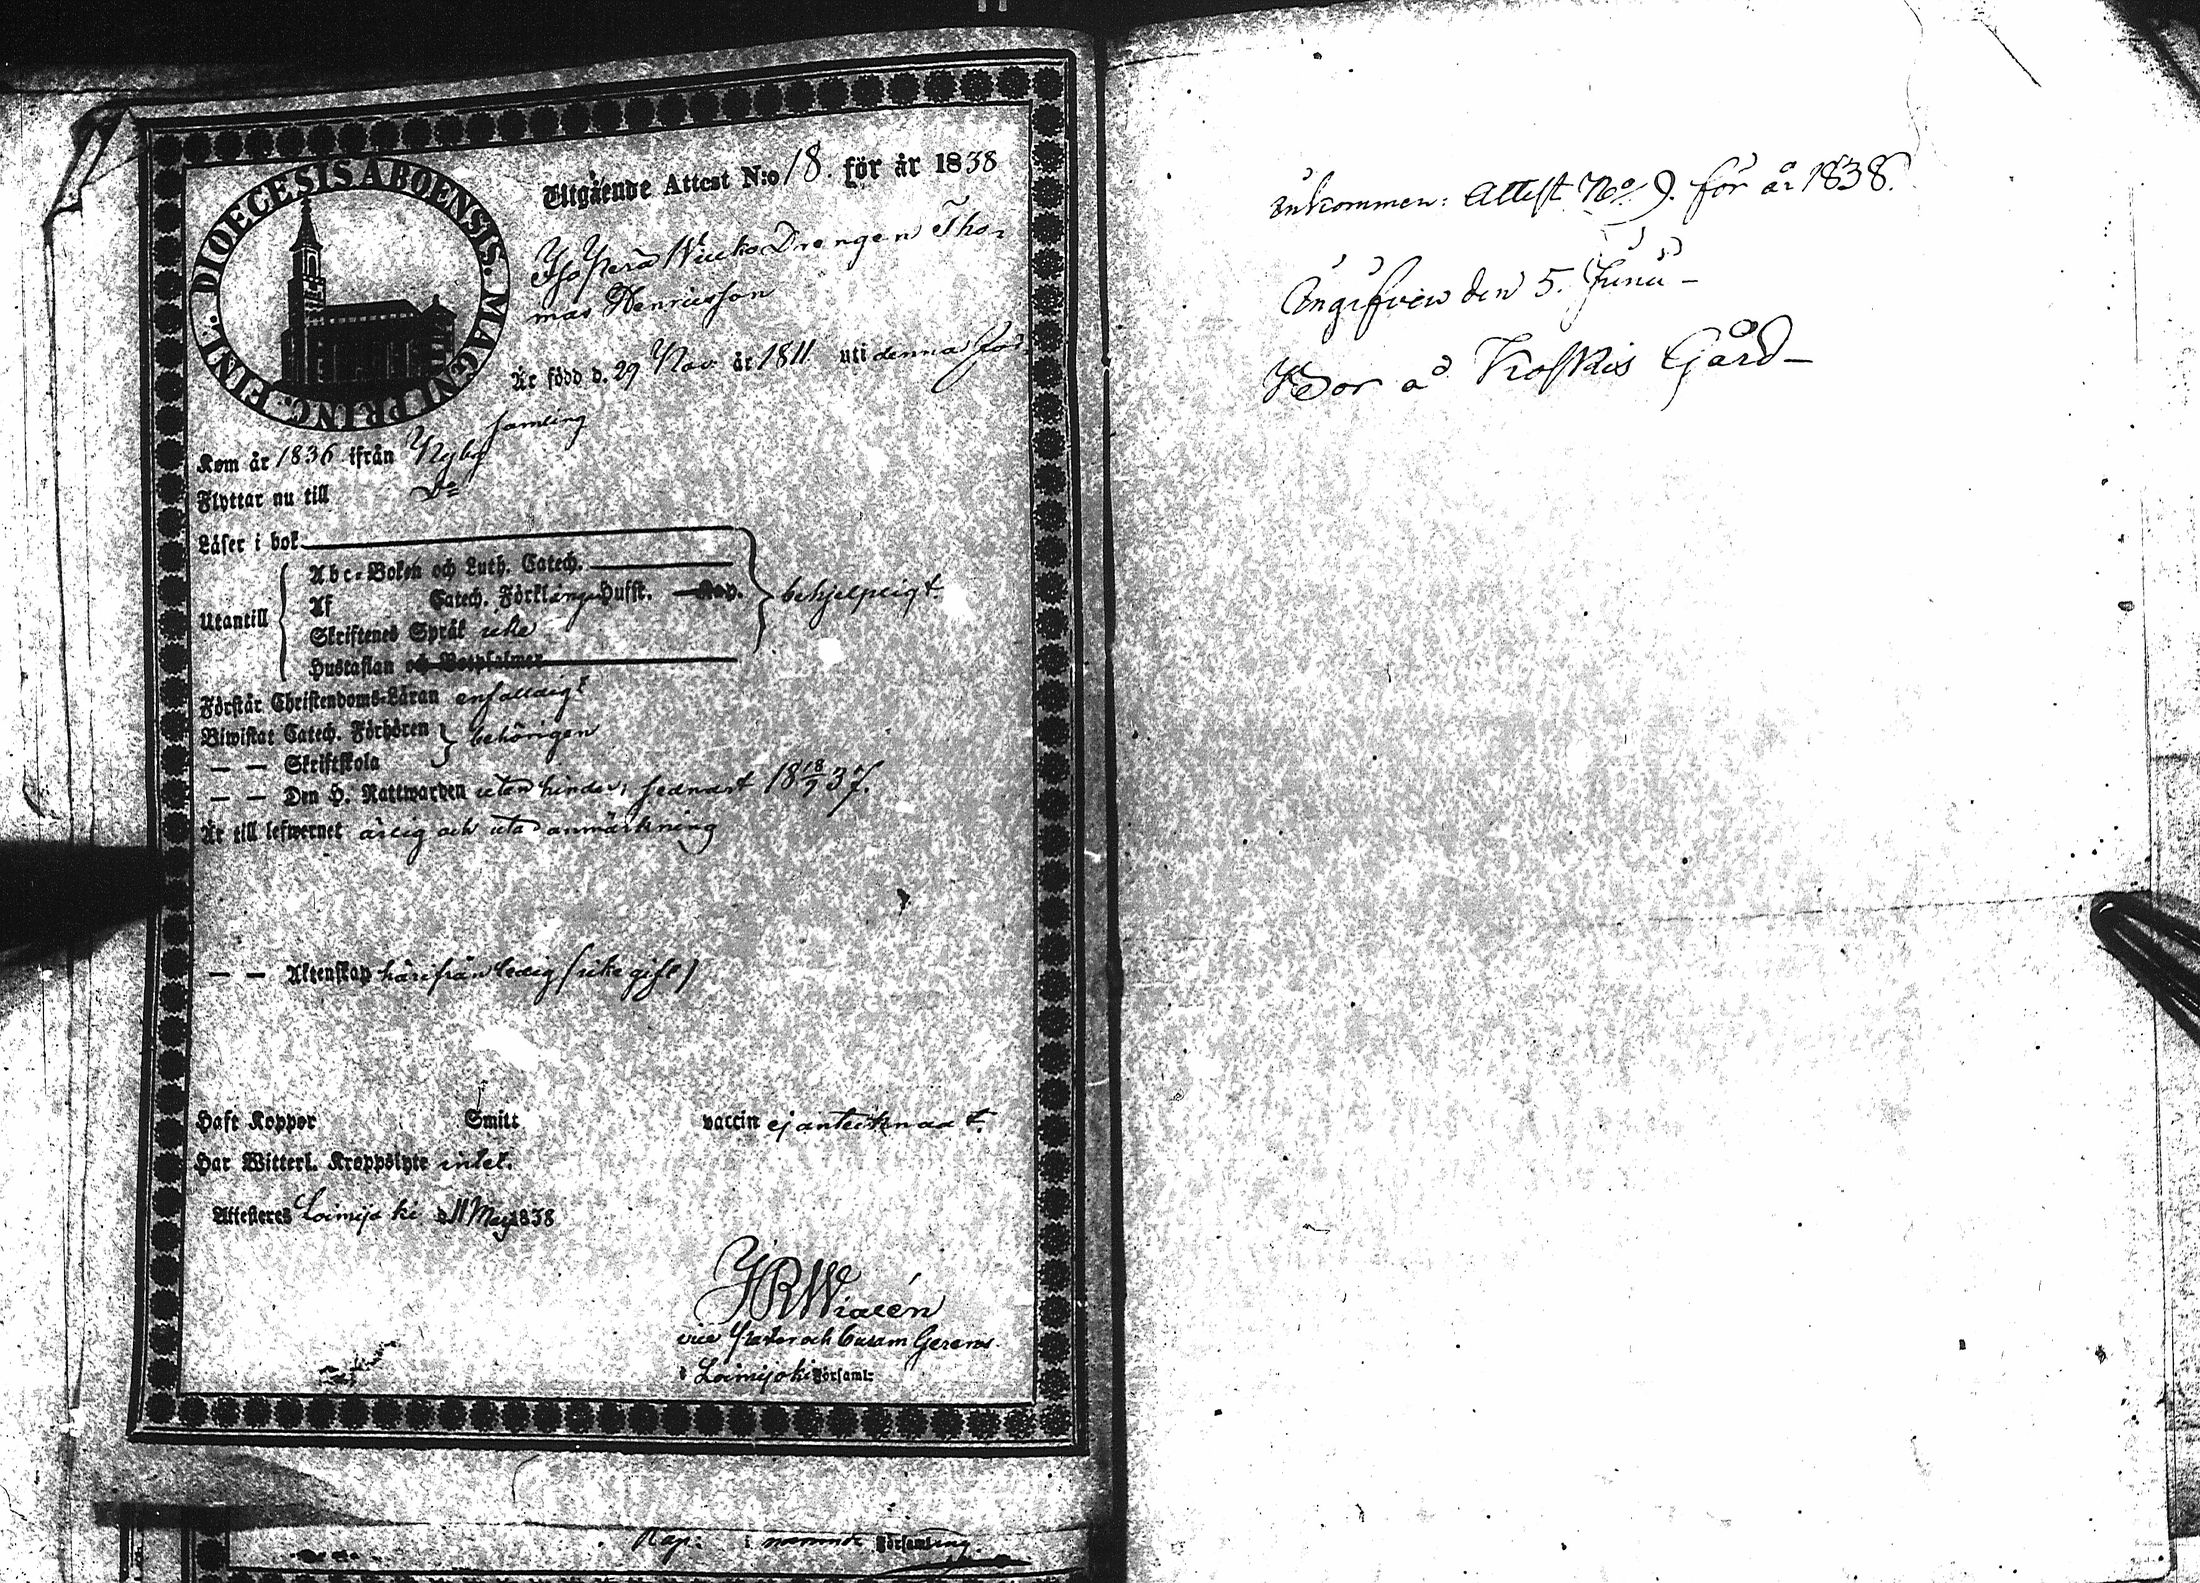 DIOECESIS ABOENSIS. MAGNI PRINC. FINL.
Utgående Attest N:o 18. för år 1838
Drengen Tho-
mas Henricsson
Är född d. 29 Nov. år 1811. uti denna För-
samling
Kom år 1836 ifrån Nyby
Flyttar nu till Do
Läser i bok
Utantill
Abc-Boken och Luth. Catech.
Af Catech. Förklaring Husst. Kap. behjelpligt
Skriftenes Språk icke
Hustaflan och Botpsalmer
Förstår Christendoms-Läran enfalldigt
Biwistat Catech. Förhören behörigen
— — Skriftskola
— — Den H. Nattwarden utan hinder, sednast 18 18/9 37.
Är till lefwernet ärlig och utan anmärkning
— — Äktenskap härifrån ledig (icke gift)
Haft Koppor Smitt vaccin ej anteiknadt.
Har Witterl. Kroppslyte intet.
Attesteres Loimijoki d. 11 Maji 1838
JRWialén
vice Pastor och Curam Gerens
i Loimijoki Församl:
Kap: i nämnde Församling
Inkommen: Attest No 9. för år 1838.
Angifven den 5. Junii –
Bor å Koskis Gård –